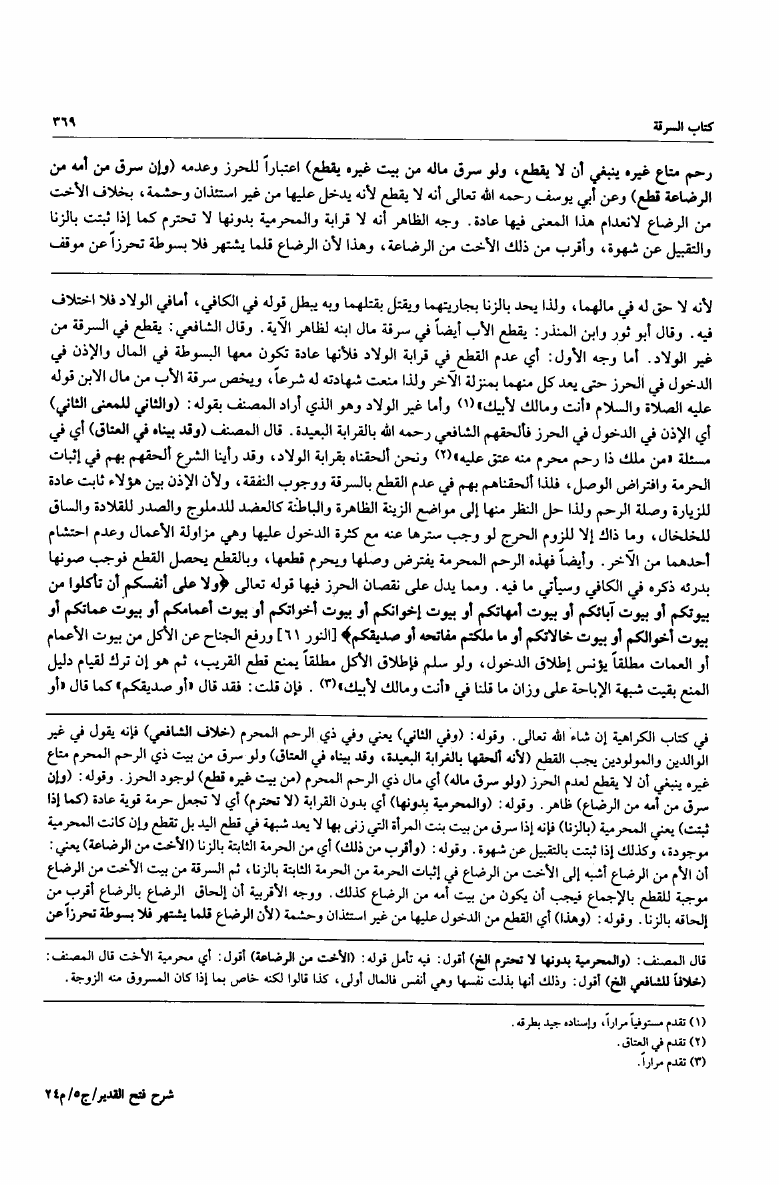 كتاب السرقة
٣٦٩
رحم متاع غيره ينبغي أن لا يقطع، ولو سرق ماله من بيت غيره يقطع) اعتباراً للحرز وعدمه (وإن سرق من أمه من
الرضاعة قطع) وعن أبي يوسف رحمه الله تعالى أنه لا يقطع لأنه يدخل عليها من غير استئذان وحشمة، بخلاف الأخت
من الرضاع لانعدام هذا المعنى فيها عادة. وجه الظاهر أنه لا قرابة والمحرمية بدونها لا تحترم كما إذا ثبتت بالزنا
والتقبيل عن شهوة، وأقرب من ذلك الأخت من الرضاعة، وهذا لأن الرضاع قلما يشتهر فلا بسوطة تحرزاً عن موقف
لأنه لا حق له في مالهما، ولذا يحد بالزنا بجاريتهما ويقتل بقتلهما وبه يبطل قوله في الكافي، أمافي الولاد فلا اختلاف
فيه. وقال أبو ثور وابن المنذر: يقطع الأب أيضاً في سرقة مال ابنه لظاهر الآية. وقال الشافعي: يقطع في السرقة من
غير الولاد. أما وجه الأول: أي عدم القطع في قرابة الولاد فلأنها عادة تكون معها البسوطة في المال والإذن في
الدخول في الحرز حتى يعد كل منهما بمنزلة الآخر ولذا منعت شهادته له شرعاً، ويخص سرقة الأب من مال الابن قوله
عليه الصلاة والسلام «أنت ومالك لأبيك»(١) وأما غير الولاد وهو الذي أراد المصنف بقوله: (والثاني للمعنى الثاني)
أي الإذن في الدخول في الحرز فألحقهم الشافعي رحمه الله بالقرابة البعيدة. قال المصنف (وقد بيناه في العتاق) أي في
مسئلة «من ملك ذا رحم محرم منه عتق عليه»(٢) ونحن ألحقناه بقرابة الولاد، وقد رأينا الشرع ألحقهم بهم في إثبات
الحرمة وافتراض الوصل، فلذا ألحقناهم بهم في عدم القطع بالسرقة ووجوب النفقة، ولأن الإذن بين هؤلاء ثابت عادة
للزيارة وصلة الرحم ولذا حل النظر منها إلى مواضع الزينة الظاهرة والباطنة كالعضد للدملوج والصدر للقلادة والساق
للخلخال، وما ذاك إلا للزوم الحرج لو وجب سترها عنه مع كثرة الدخول عليها وهي مزاولة الأعمال وعدم احتشام
أحدهما من الآخر. وأيضاً فهذه الرحم المحرمة يفترض وصلها ويحرم قطعها، وبالقطع يحصل القطع فوجب صونها
بدرئه ذكره في الكافي وسيأتي ما فيه. ومما يدل على نقصان الحرز فيها قوله تعالى ﴿ولا على أنفسكم أن تأكلوا من
بيوتكم أو بيوت آبائكم أو بيوت أمهاتكم أو بيوت إخوانكم أو بيوت أخواتكم أو بيوت أعمامكم أو بيوت عماتكم أو
بيوت أخوالكم أو بيوت خالاتكم أو ما ملكتم مفاتحه أو صديقكم﴾ [النور ٦١] ورفع الجناح عن الأكل من بيوت الأعمام
أو العمات مطلقاً يؤنس إطلاق الدخول، ولو سلم فإطلاق الأكل مطلقاً يمنع قطع القريب، ثم هو إن ترك لقيام دليل
المنع بقيت شبهة الإباحة على وزان ما قلنا في «أنت ومالك لأبيك»(٣) . فإن قلت: فقد قال «أو صديقكم» كما قال «أو
في كتاب الكراهية إن شاء الله تعالى. وقوله: (وفي الثاني) يعني وفي ذي الرحم المحرم (خلاف الشافعي) فإنه يقول في غير
الوالدين والمولودين يجب القطع (لأنه ألحقها بالقرابة البعيدة، وقد بيناه في العتاق) ولو سرق من بيت ذي الرحم المحرم متاع
غيره ينبغي أن لا يقطع لعدم الحرز (ولو سرق ماله) أي مال ذي الرحم المحرم (من بيت غيره قطع) لوجود الحرز. وقوله: (وإن
سرق من أمه من الرضاع) ظاهر. وقوله: (والمحرمية بدونها) أي بدون القرابة (لا تحترم) أي لا تجعل حرمة قوية عادة (كما إذا
ثبتت) يعني المحرمية (بالزنا) فإنه إذا سرق من بيت بنت المرأة التي زنى بها لا يعد شبهة في قطع اليد بل تقطع وإن كانت المحرمية
موجودة، وكذلك إذا ثبتت بالتقبيل عن شهوة. وقوله: (وأقرب من ذلك) أي من الحرمة الثابتة بالزنا (الأخت من الرضاعة) يعني:
أن الأم من الرضاع أشبه إلى الأخت من الرضاع في إثبات الحرمة من الحرمة الثابتة بالزنا، ثم السرقة من بيت الأخت من الرضاع
موجبة للقطع بالإجماع فيجب أن يكون من بيت أمه من الرضاع كذلك. ووجه الأقربية أن إلحاق الرضاع بالرضاع أقرب من
إلحاقه بالزنا. وقوله: (وهذا) أي القطع من الدخول عليها من غير استئذان وحشمة (لأن الرضاع قلما يشتهر فلا بسوطة تحرزاً عن
قال المصنف: (والمحرمية بدونها لا تحترم الخ) أقول: فيه تأمل قوله: (الأخت من الرضاعة) أقول: أي محرمية الأخت قال المصنف:
(خلافاً للشافعي الخ) أقول: وذلك أنها بذلت نفسها وهي أنفس فالمال أولى، كذا قالوا لكنه خاص بما إذا كان المسروق منه الزوجة.
(١) تقدم مستوفياً مراراً، وإسناده جيد بطرقه.
(٢) تقدم في العتاق.
(٣) تقدم مراراً.
شرح فتح القدير/ج٥/م٢٤